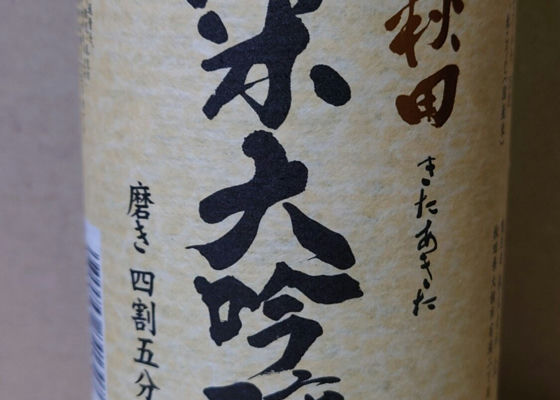 秋田
きたあきた
米大吟
磨き 四割五分